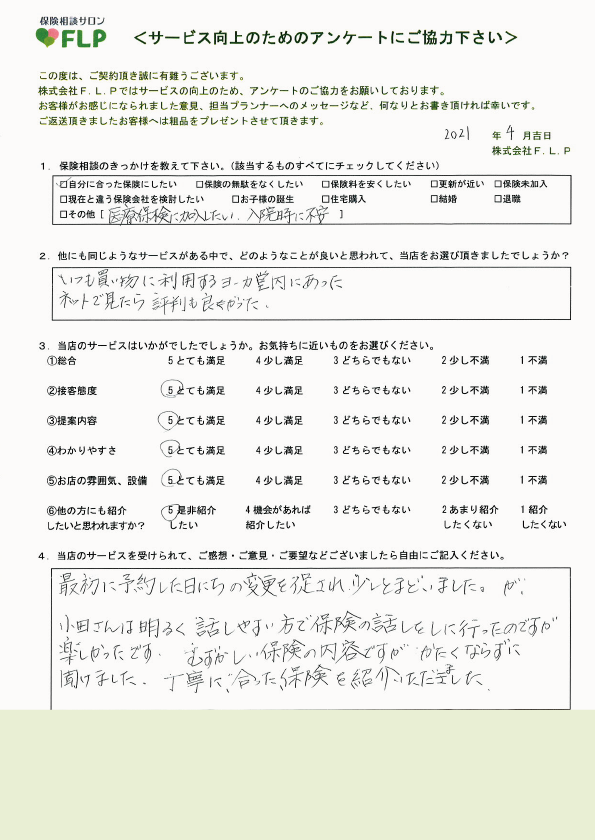 保険相談サロン
FLP
＜サービス向上のためのアンケートにご協力下さい＞
この度は、ご契約頂き誠に有難うございます。
株式会社Ｆ．Ｌ．Ｐではサービスの向上のため、アンケートのご協力をお願いしております。
お客様がお感じになられました意見、担当プランナーへのメッセージなど、何なりとお書き頂ければ幸いです。
ご返送頂きましたお客様へは粗品をプレゼントさせて頂きます。
2021 年 4 月吉日
株式会社Ｆ．Ｌ．Ｐ
１．保険相談のきっかけを教えて下さい。（該当するものすべてにチェックしてください）
□自分に合った保険にしたい □保険の無駄をなくしたい □保険料を安くしたい □更新が近い □保険未加入
□現在と違う保険会社を検討したい □お子様の誕生 □住宅購入 □結婚 □退職
□その他 [ 医療保険に加入したい. 入院時に不安 ]
２．他にも同じようなサービスがある中で、どのようなことが良いと思われて、当店をお選び頂きましたでしょうか？
いつも買い物に利用するヨーカ堂内にあった
ネットで見たら評判も良くかった.
３．当店のサービスはいかがでしたでしょうか。お気持ちに近いものをお選びください。
①総合 5 とても満足 4 少し満足 3 どちらでもない 2 少し不満 1 不満
②接客態度 5 とても満足 4 少し満足 3 どちらでもない 2 少し不満 1 不満
③提案内容 5 とても満足 4 少し満足 3 どちらでもない 2 少し不満 1 不満
④わかりやすさ 5 とても満足 4 少し満足 3 どちらでもない 2 少し不満 1 不満
⑤お店の雰囲気、設備 5 とても満足 4 少し満足 3 どちらでもない 2 少し不満 1 不満
⑥他の方にも紹介 5 是非紹介 4 機会があれば 3 どちらでもない 2 あまり紹介 1 紹介
したいと思われますか？ したい 紹介したい したくない したくない
４．当店のサービスを受けられて、ご感想・ご意見・ご要望などございましたら自由にご記入ください。
最初に予約した日にちの変更を促され少しとまどいました。が、
小田さんは明るく話しやすい方で保険の話しをしに行ったのですが
楽しかったです. むずかしい保険の内容ですがかたくならずに
聞けました. 丁寧に、合った保険を紹介いただきました.